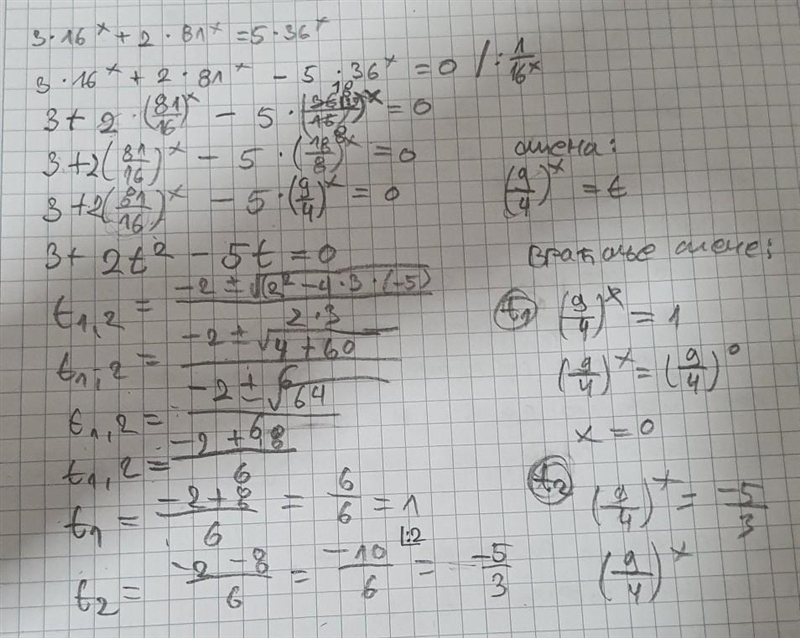 3·16^x + 2·81^x = 5·36^x
3·16^x + 2·81^x - 5·36^x = 0 /: 1/16^x
3 + 2·(81/16)^x - 5·(36/16)^x = 0
3 + 2(81/16)^x - 5·(18/8)^x = 0
3 + 2(81/16)^x - 5·(9/4)^x = 0
3 + 2t² - 5t = 0
t1,2 = (-2 ± √(2² - 4·3·(-5)))/(2·3)
t1,2 = (-2 ± √(4+60))/6
t1,2 = (-2 ± √64)/6
t1,2 = (-2 ± 8)/6
t1 = (-2+8)/6 = 6/6 = 1
t2 = (-2-8)/6 = -10/6 |:2 = -5/3
смена:
(9/4)^x = t
Враћање смене:
t1 (9/4)^x = 1
(9/4)^x = (9/4)^0
x = 0
t2 (9/4)^x = -5/3
(9/4)^x